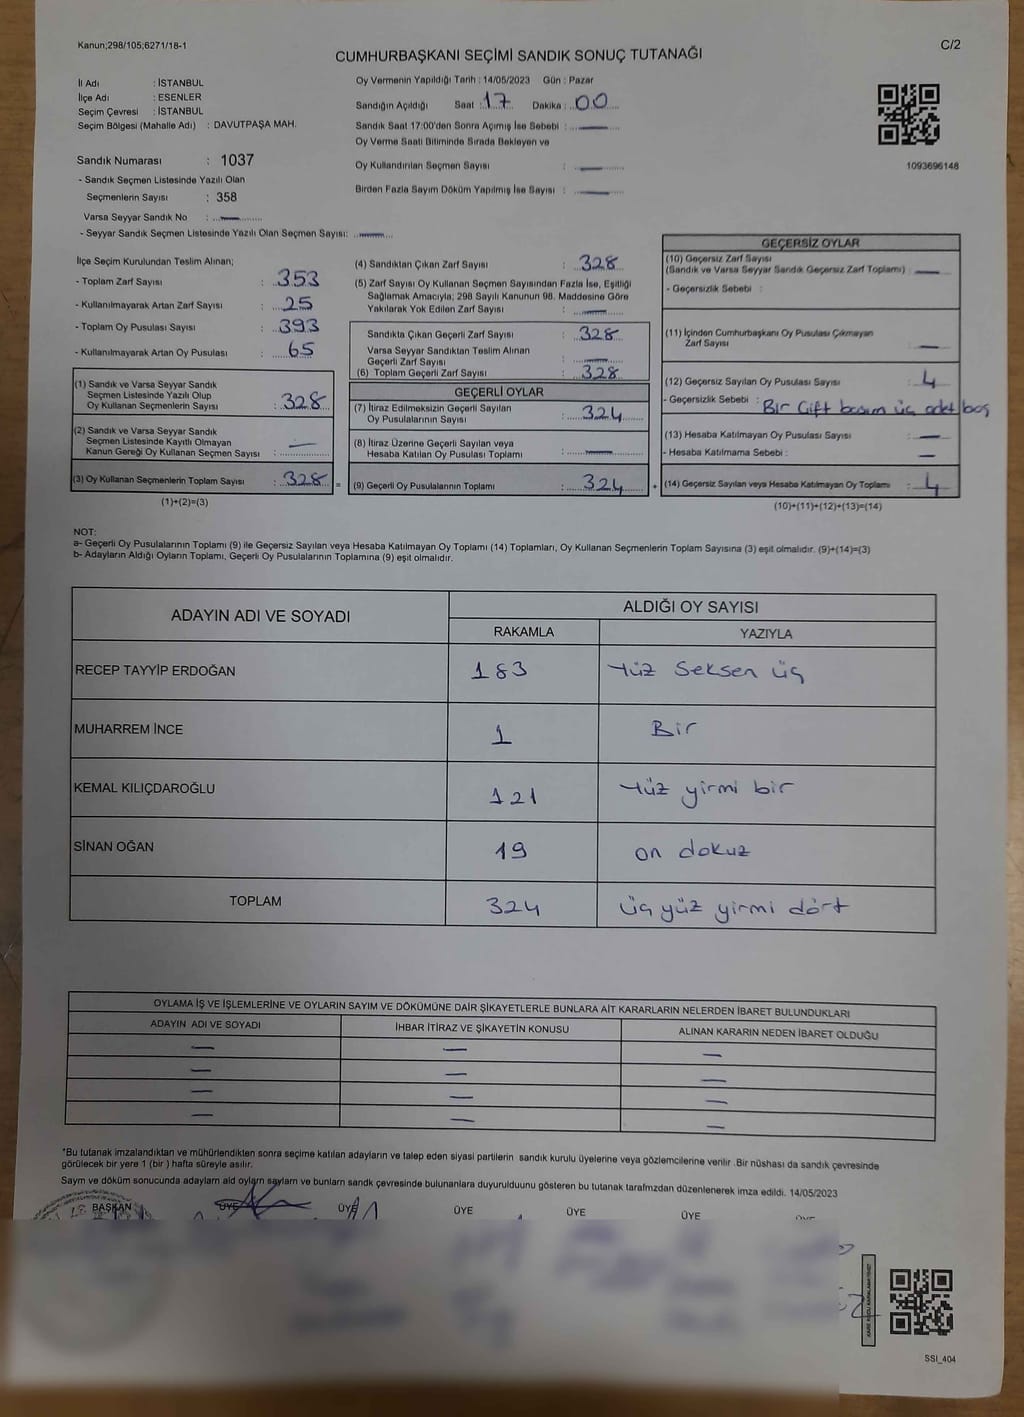 Kanun;298/105;6271/18-1
C/2
CUMHURBAŞKANI SEÇİMİ SANDIK SONUÇ TUTANAĞI
İl Adı : İSTANBUL
İlçe Adı : ESENLER
Seçim Çevresi : İSTANBUL
Seçim Bölgesi (Mahalle Adı) : DAVUTPAŞA MAH.
Sandık Numarası : 1037
- Sandık Seçmen Listesinde Yazılı Olan
Seçmenlerin Sayısı : 358
Varsa Seyyar Sandık No : —
- Seyyar Sandık Seçmen Listesinde Yazılı Olan Seçmen Sayısı: —
Oy Vermenin Yapıldığı Tarih : 14/05/2023 Gün : Pazar
Sandığın Açıldığı Saat : 17 Dakika : 00
Sandık Saat 17:00'den Sonra Açımış İse Sebebi : —
Oy Verme Saati Bitiminde Sırada Bekleyen ve
Oy Kullandırılan Seçmen Sayısı : —
Birden Fazla Sayım Döküm Yapılmış İse Sayısı : —
1093696148
İlçe Seçim Kurulundan Teslim Alınan;
- Toplam Zarf Sayısı : 353
- Kullanılmayarak Artan Zarf Sayısı : 25
- Toplam Oy Pusulası Sayısı : 393
- Kullanılmayarak Artan Oy Pusulası : 65
(1) Sandık ve Varsa Seyyar Sandık
Seçmen Listesinde Yazılı Olup
Oy Kullanan Seçmenlerin Sayısı : 328
(2) Sandık ve Varsa Seyyar Sandık
Seçmen Listesinde Kayıtlı Olmayan
Kanun Gereği Oy Kullanan Seçmen Sayısı : —
(3) Oy Kullanan Seçmenlerin Toplam Sayısı : 328 =
(1)+(2)=(3)
(4) Sandıktan Çıkan Zarf Sayısı : 328
(5) Zarf Sayısı Oy Kullanan Seçmen Sayısından Fazla İse, Eşitliği
Sağlamak Amacıyla; 298 Sayılı Kanunun 98. Maddesine Göre
Yakılarak Yok Edilen Zarf Sayısı : —
Sandıkta Çıkan Geçerli Zarf Sayısı : 328
Varsa Seyyar Sandıktan Teslim Alınan
Geçerli Zarf Sayısı : —
(6) Toplam Geçerli Zarf Sayısı : 328
GEÇERLİ OYLAR
(7) İtiraz Edilmeksizin Geçerli Sayılan
Oy Pusulalarının Sayısı : 324
(8) İtiraz Üzerine Geçerli Sayılan veya
Hesaba Katılan Oy Pusulası Toplamı : —
(9) Geçerli Oy Pusulalarının Toplamı : 324 +
GEÇERSİZ OYLAR
(10) Geçersiz Zarf Sayısı
(Sandık ve Varsa Seyyar Sandık Geçersiz Zarf Toplamı) : —
- Geçersizlik Sebebi :
(11) İçinden Cumhurbaşkanı Oy Pusulası Çıkmayan
Zarf Sayısı : —
(12) Geçersiz Sayılan Oy Pusulası Sayısı : 4
- Geçersizlik Sebebi : Bir Çift basım üç adet boş
(13) Hesaba Katılmayan Oy Pusulası Sayısı : —
- Hesaba Katılmama Sebebi : —
(14) Geçersiz Sayılan veya Hesaba Katılmayan Oy Toplamı : 4
(10)+(11)+(12)+(13)=(14)
NOT:
a- Geçerli Oy Pusulalarının Toplamı (9) ile Geçersiz Sayılan veya Hesaba Katılmayan Oy Toplamı (14) Toplamları, Oy Kullanan Seçmenlerin Toplam Sayısına (3) eşit olmalıdır. (9)+(14)=(3)
b- Adayların Aldığı Oyların Toplamı, Geçerli Oy Pusulalarının Toplamına (9) eşit olmalıdır.
ADAYIN ADI VE SOYADI
ALDIĞI OY SAYISI
RAKAMLA YAZIYLA
RECEP TAYYİP ERDOĞAN 183 Yüz Seksen üç
MUHARREM İNCE 1 Bir
KEMAL KILIÇDAROĞLU 121 Yüz yirmi bir
SİNAN OĞAN 19 on dokuz
TOPLAM 324 üç yüz yirmi dört
OYLAMA İŞ VE İŞLEMLERİNE VE OYLARIN SAYIM VE DÖKÜMÜNE DAİR ŞİKAYETLERLE BUNLARA AİT KARARLARIN NELERDEN İBARET BULUNDUKLARI
ADAYIN ADI VE SOYADI İHBAR İTİRAZ VE ŞİKAYETİN KONUSU ALINAN KARARIN NEDEN İBARET OLDUĞU
— — —
— — —
— — —
— — —
*Bu tutanak imzalandıktan ve mühürlendikten sonra seçime katılan adayların ve talep eden siyasi partilerin sandık kurulu üyelerine veya gözlemcilerine verilir .Bir nüshası da sandık çevresinde
görülecek bir yere 1 (bir ) hafta süreyle asılır.
Sayım ve döküm sonucunda adayların ald oyların sayların ve bunların sandk çevresinde bulunanlara duyurulduunu gösteren bu tutanak tarafmzdan düzenlenerek imza edildi. 14/05/2023
BAŞKAN ÜYE ÜYE ÜYE ÜYE ÜYE
SSI_404